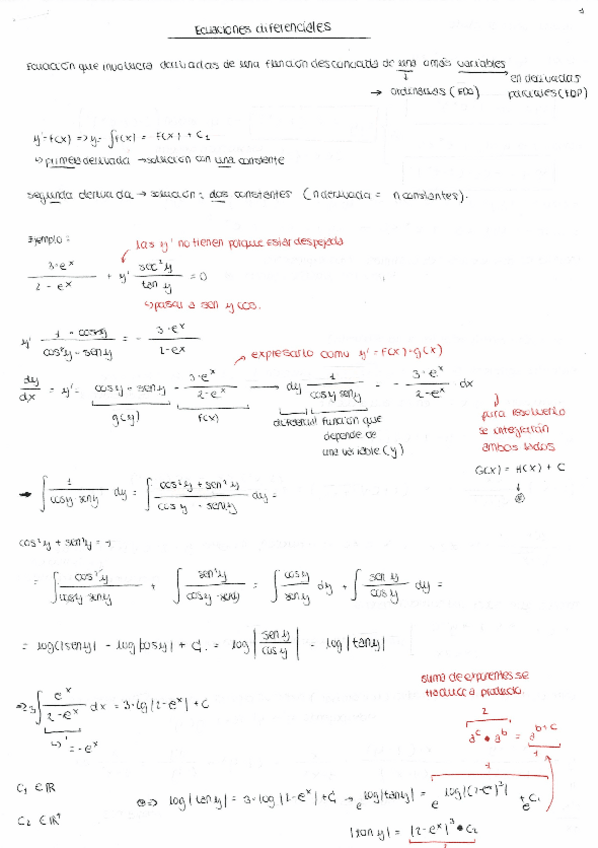 Ecuaciones diferenciales
Ecuación que involucra derivadas de una función desconocida de una o más variables
→ ordinarias (EDO)
en derivadas parciales (EDP)
y' = f(x) => y = ∫f(x) = F(x) + C₁
↳ primera derivada → solución con una constante
segunda derivada → solución: dos constantes (n derivada = n constantes).
Ejemplo:
las y' no tienen porque estar despejada
3·eˣ / 2 - eˣ + y' sec²y / tan y = 0
↳ pasar a sen y cos.
y' 1 · cos y / cos²y · sen y = - 3·eˣ / 2-eˣ
expresarlo como y' = f(x)·g(x)
dy/dx = y' = cos y · sen y · 3·eˣ / 2-eˣ → dy 1 / cos y sen y = - 3·eˣ / 2-eˣ dx
g(y) f(x)
diferencial función que depende de una variable (y)
para resolverlo se integrarán ambos lados
G(x) = H(x) + C
⊛
→ ∫ 1 / cos y · sen y dy = ∫ cos²y + sen²y / cos y · sen y dy =
cos²y + sen²y = 1
= ∫ cos²y / cos y · sen y + ∫ sen²y / cos y · sen y = ∫ cos y / sen y dy + ∫ sen y / cos y dy =
= log |sen y| - log |cos y| + C₁ = log | sen y / cos y | = log |tan y|
suma de exponentes se traduce a producto.
=> 3 ∫ eˣ / 2-eˣ dx = 3·log |2-eˣ| + C
↳ ' = -eˣ
2
aᶜ · aᵇ = aᵇ⁺ᶜ
1
C₁ ∈ ℝ
⊛ => log |tan y| = 3·log |2-eˣ| + C₁ → e^log|tan y| = e^log|(2-eˣ)³| + e^C₁
1
C₂ ∈ ℝ⁺
|tan y| = |2-eˣ|³ · C₂